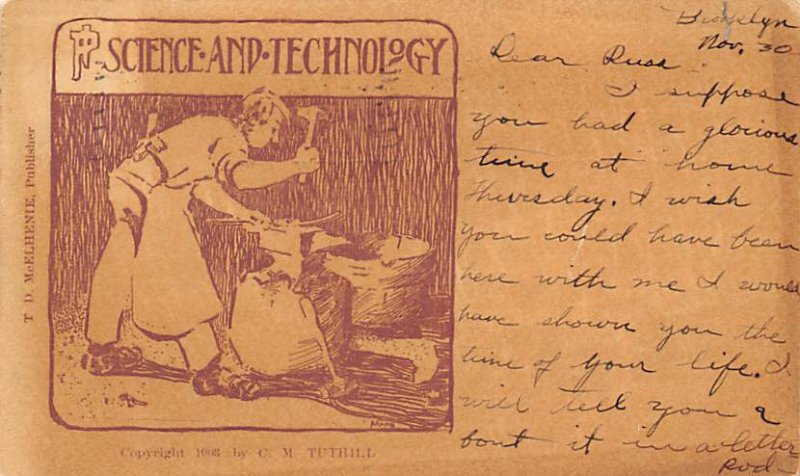 PI SCIENCE·AND·TECHNOLOGY
T. D. McELHENIE, Publisher
Copyright 1906 by C. M. TUTHILL
Brooklyn
Nov. 30
Dear Russ
I suppose
you had a glorious
time at home
Thursday. I wish
you could have been
here with me I would
have shown you the
time of your life. I
will tell you a
bout it in a letter
Rod